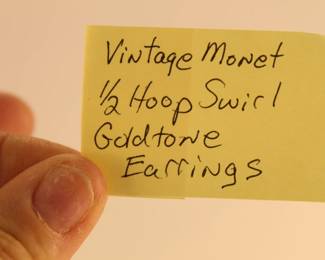 Vintage Monet
1/2 Hoop Swirl
Goldtone
Earrings